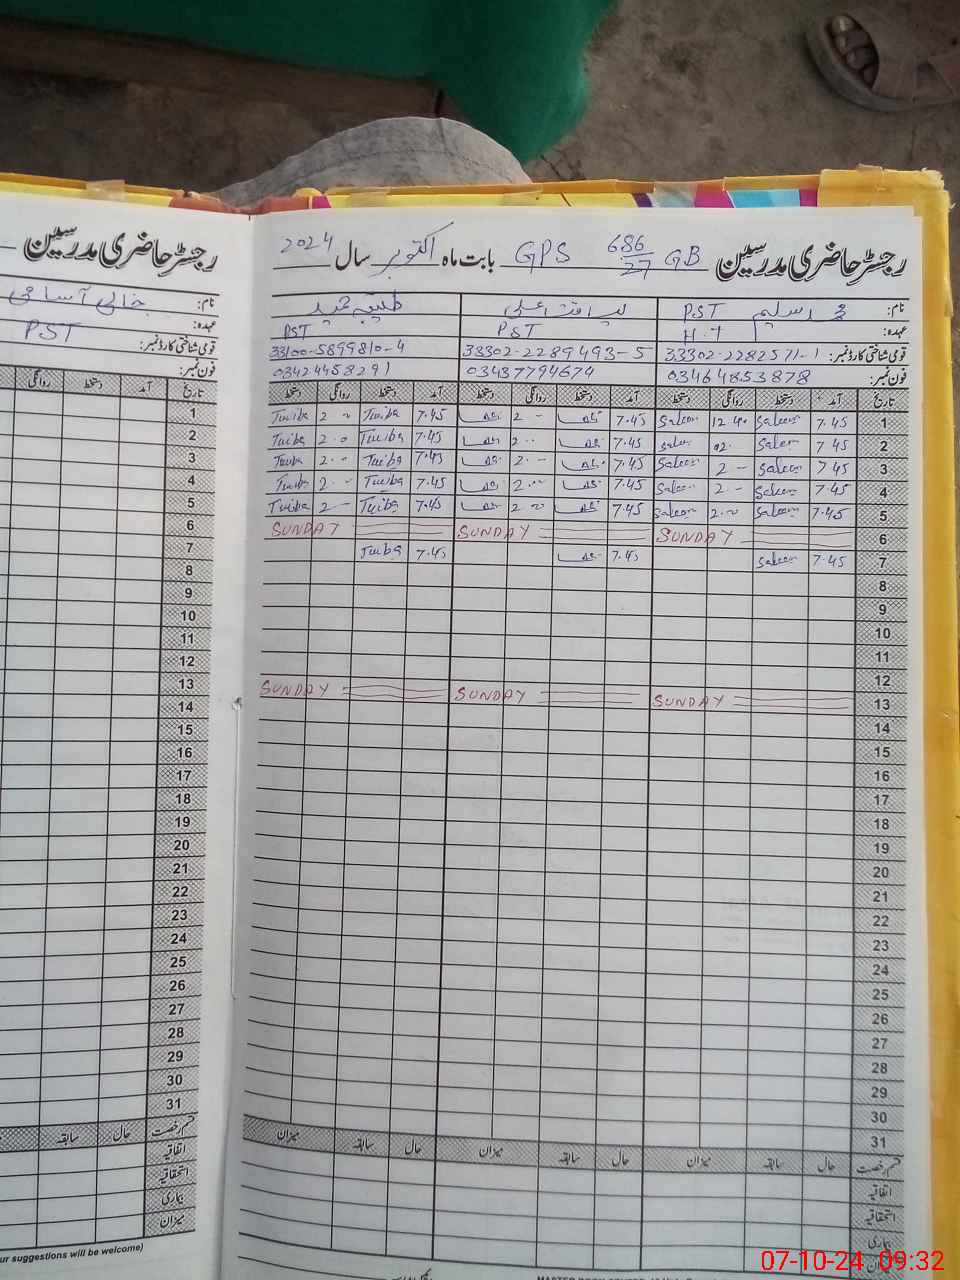 رجسٹر حاضری مدرسین GPS 686/27 GB بابت ماہ اکتوبر سال 2024
نام: محمد سلیم PST لیاقت علی طیبہ مجید
عہدہ: H.T PST PST
قومی شناختی کارڈ نمبر: 33302-2282571-1 33302-2289493-5 33100-5899810-4
فون نمبر: 03464853878 03437794674 03424458291
تاریخ آمد دستخط روانگی دستخط آمد دستخط روانگی دستخط آمد دستخط روانگی دستخط
1 7.45 Saleem 12 40 Saleem 7.45 2 - 7.45 Twiba 2 Twiba
2 7 45 Saleem 02. Saleem 7.45 2.. 7.45 Twiba 2.0 Twiba
3 7 45 Saleem 2 - Saleem 7.45 2.. - 7.45 Twiba 2.. Twiba
4 7.45 Saleem 2 - Saleem 7.45 2.. 7.45 Twiba 2.. - Twiba
5 7.45 Saleem 2.. Saleem 7.45 2 7.45 Twiba 2 - Twiba
6 SUNDAY SUNDAY SUNDAY
7 7.45 Saleem 7.45 7.45 Twiba
8
9
10
11
12
13 SUNDAY SUNDAY SUNDAY
14
15
16
17
18
19
20
21
22
23
24
25
26
27
28
29
30
31
قسم رخصت حال سابقہ میزان حال سابقہ میزان حال سابقہ میزان
اتفاقیہ
استحقاقیہ
بیماری
میزان
رجسٹر حاضری مدرسین
نام: خالی آسامی
عہدہ: PST
قومی شناختی کارڈ نمبر:
فون نمبر:
تاریخ آمد دستخط روانگی
1
2
3
4
5
6
7
8
9
10
11
12
13
14
15
16
17
18
19
20
21
22
23
24
25
26
27
28
29
30
31
قسم رخصت حال سابقہ
اتفاقیہ
استحقاقیہ
بیماری
میزان
ur suggestions will be welcome)
07-10-24 09:32